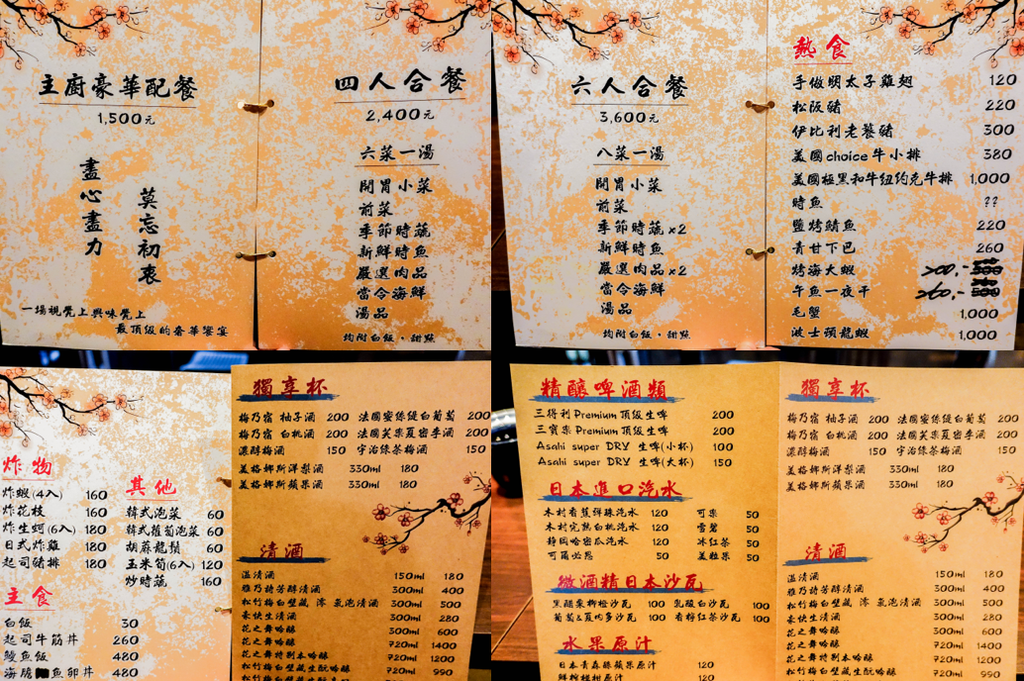 主廚豪華配餐
1,500元
盡心盡力
莫忘初衷
一場視覺上與味覺上
最頂級的奢華饗宴
四人合餐
2,400元
六菜一湯
開胃小菜
前菜
季節時蔬
新鮮時魚
嚴選肉品
當令海鮮
湯品
均附白飯·甜點
六人合餐
3,600元
八菜一湯
開胃小菜
前菜
季節時蔬×2
新鮮時魚
嚴選肉品×2
當令海鮮
湯品
均附白飯·甜點
熱食
手做明太子雞翅 120
松阪豬 220
伊比利老饕豬 300
美國choice牛小排 380
美國極黑和牛紐約克牛排 1,000
時魚 ??
鹽烤鯖魚 220
青甘下巴 260
烤海大蝦 200.-
午魚一夜干 260.-
毛蟹 1,000
波士頓龍蝦 1,000
炸物
炸蝦(4入) 160
炸花枝 160
炸生蚵(6入) 180
日式炸雞 180
起司豬排 180
主食
白飯 30
起司牛筋丼 260
鰻魚飯 480
海膽魚卵丼 480
其他
韓式泡菜 60
韓式蘿蔔泡菜 60
胡麻龍鬚 60
玉米筍(6入) 120
炒時蔬 160
獨享杯
梅乃宿 柚子酒 200 法國蜜絲緹白葡萄 200
梅乃宿 白桃酒 200 法國芙樂夏密李酒 200
濃醇梅酒 150 宇治綠茶梅酒 150
美格娜斯洋梨酒 330ml 180
美格娜斯蘋果酒 330ml 180
清酒
溫清酒 150ml 180
雅乃詩芳醇清酒 300ml 400
松竹梅白壁藏 澪 氣泡清酒 300ml 500
豪快生清酒 300ml 280
花之舞吟釀 300ml 600
花之舞吟釀 720ml 1400
花之舞特別本吟釀 720ml 1200
松竹梅白壁藏生酛吟釀 720ml 990
精釀啤酒類
三得利Premium頂級生啤 200
三寶樂Premium頂級生啤 200
Asahi super DRY 生啤(小杯) 100
Asahi super DRY 生啤(大杯) 150
日本進口汽水
木村香蕉彈珠汽水 120 可樂 50
木村完熟白桃汽水 120 雪碧 50
靜岡哈密瓜汽水 120 冰紅茶 50
可爾必思 50 美粒果 50
微酒精日本沙瓦
黑醋栗柳橙沙瓦 100 乳酸白沙瓦 100
葡萄&夏肉多沙瓦 100 香檸紅茶沙瓦 100
水果原汁
日本青森縣蘋果原汁 120
鮮榨椪柑原汁 120
獨享杯
梅乃宿 柚子酒 200 法國蜜絲緹白葡萄 200
梅乃宿 白桃酒 200 法國芙樂夏密李酒 200
濃醇梅酒 150 宇治綠茶梅酒 150
美格娜斯洋梨酒 330ml 180
美格娜斯蘋果酒 330ml 180
清酒
溫清酒 150ml 180
雅乃詩芳醇清酒 300ml 400
松竹梅白壁藏 澪 氣泡清酒 300ml 500
豪快生清酒 300ml 280
花之舞吟釀 300ml 600
花之舞吟釀 720ml 1400
花之舞特別本吟釀 720ml 1200
松竹梅白壁藏生酛吟釀 720ml 990